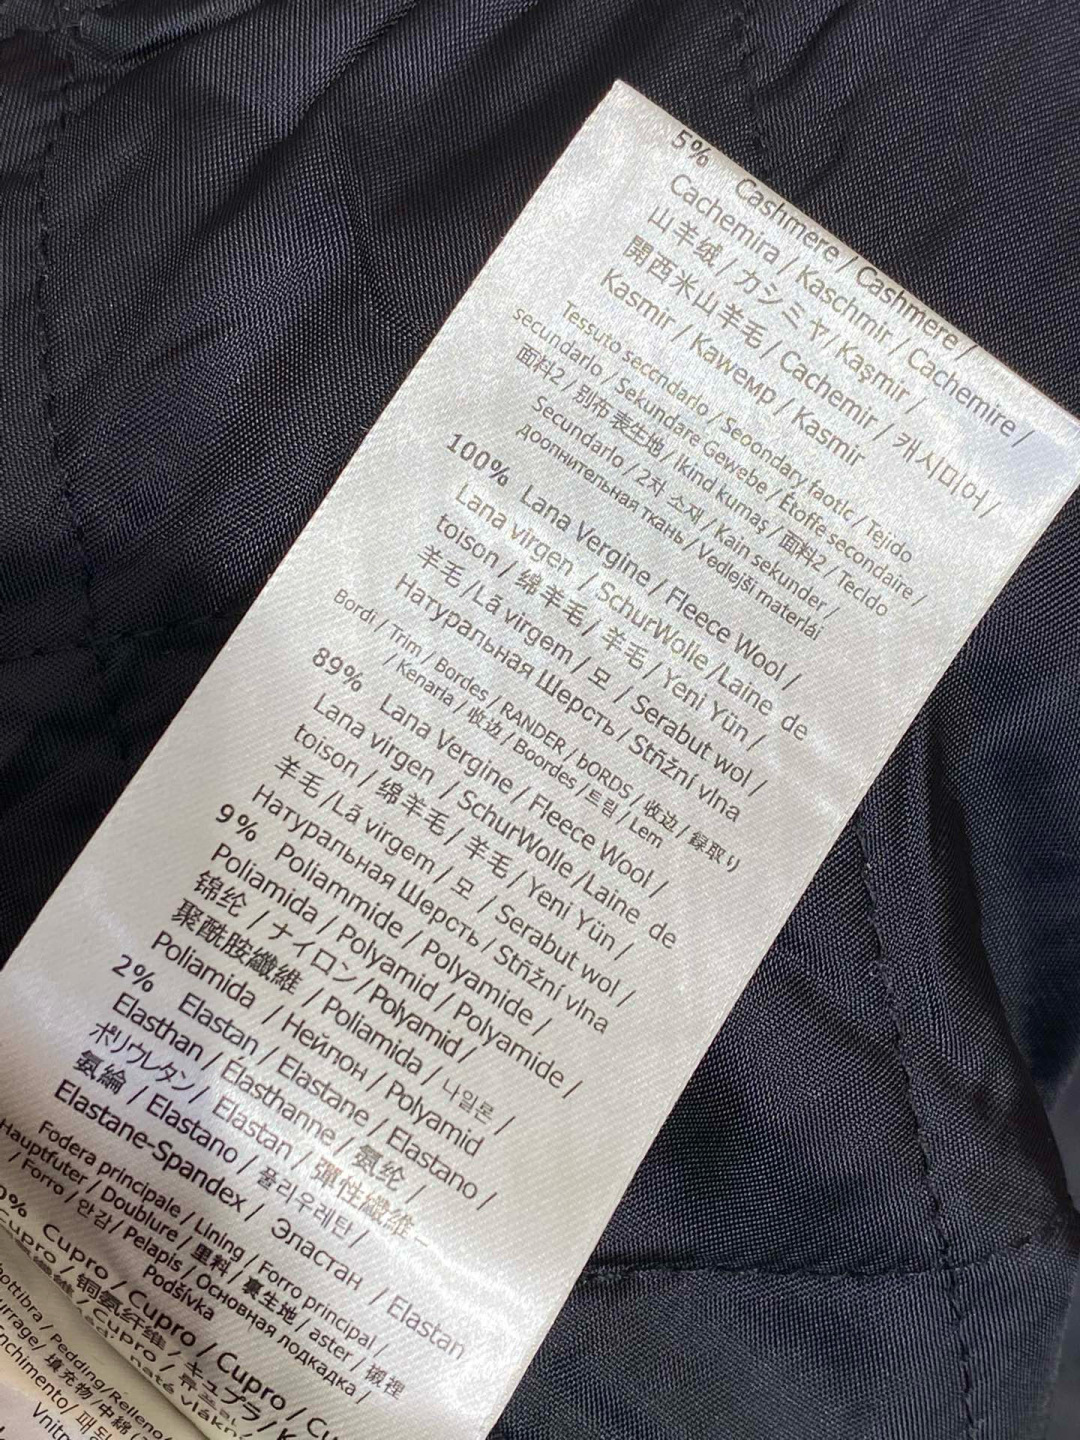 5% Cashmere / Cashmere /
Cachemira / Kaschmir / Cachemire /
山羊绒 / カシミヤ / Kaşmir /
開西米山羊毛 / Cachemir / 캐시미어 /
Kasmir / Кawемр / Kasmir
Tessuto seccndarlo / Seoondary faotic / Tejido
secundarlo / Sekundare Gewebe / Étoffe secondaire /
面料2 / 别布 表生地 / Ikind kumaş / 面料2 / Tecido
Secundarlo / 2차 소재 / Kain sekunder /
доолнительная ткань / Vedlejši materlái
100% Lana Vergine / Fleece Wool /
Lana virgen / SchurWolle / Laine de
toison / 绵羊毛 / 羊毛 / Yeni Yün /
羊毛 / Lã virgem / 모 / Serabut wol /
Натуральная Шерсть / Stñžní vlna
Bordi / Trim / Bordes / RANDER / bORDS / 收边 / 録取り
/ Kenarla / 收边 / Boordes / 트림 / Lem
89% Lana Vergine / Fleece Wool /
Lana virgen / SchurWolle / Laine de
toison / 绵羊毛 / 羊毛 / Yeni Yün /
羊毛 / Lã virgem / 모 / Serabut wol /
Натуральная Шерсть / Stñžní vlna
9% Poliammide / Polyamide /
Poliamida / Polyamid / Polyamide /
锦纶 / ナイロン / Polyamid /
聚酰胺纖維 / Poliamida / 나일론 /
Poliamida / Нейлон / Polyamid
2% Elastan / Elastane / Elastano /
Elasthan / Élasthanne / 氨纶 /
ポリウレタン / Elastan / 彈性纖維 –
氨綸 / Elastano / 폴리우레탄 /
Elastane-Spandex / Эластан / Elastan
Fodera principale / Lining / Forro principal /
Hauptfuter / Doublure / 里料 / 裏生地 / aster / 襯裡
/ Forro / 안감 / Pelapis / Основная лодкадка /
Podšívka
0% Cupro / Cupro / Cupro /
Cupro / 铜氨纤维 / キュプラ /
Cupro /
/ Pedding / Relleno
/ 填充物 / 中綿